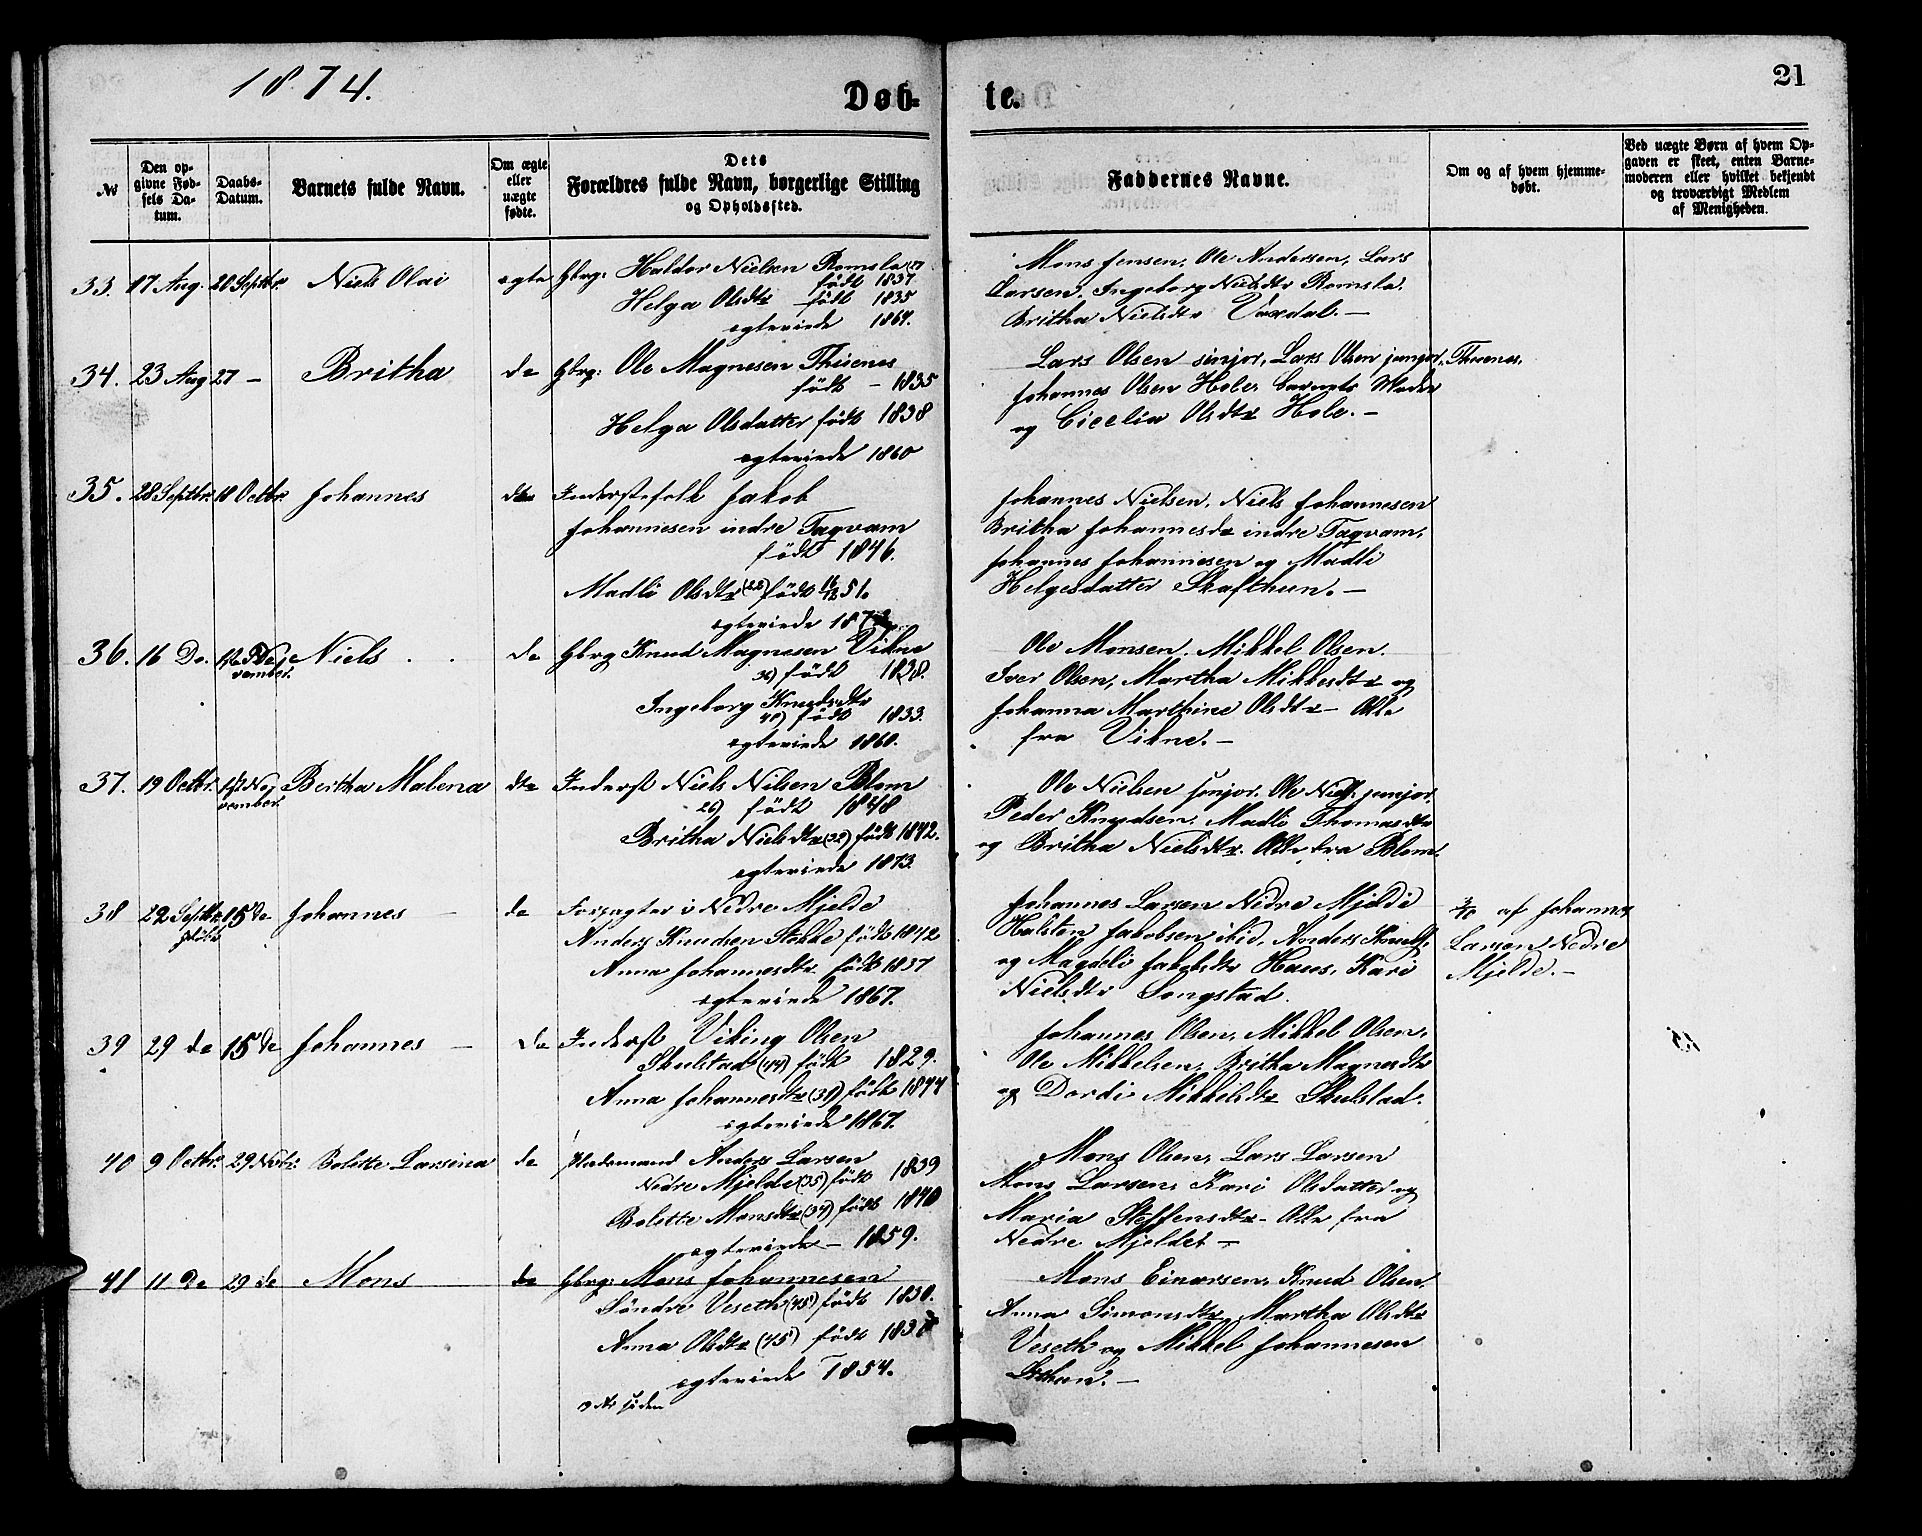 1874.
Døb-
te.
21
№
Den opgivne Fødsels Datum.
Daabs-Datum.
Barnets fulde Navn.
Om ægte eller uægte fødte.
Dets Forældres fulde Navn, borgerlige Stilling og Opholdssted.
Faddernes Navne.
Om og af hvem hjemmedøbt.
Ved uægte Børn af hvem Opgaven er skeet, enten Barnemoderen eller hvilket bekjendt og troværdigt Medlem af Menigheden.
33. 17 Aug. 20 Septbr. Niels Olai
ægte Gbrg: Haldor Nielsen Romslo
født 1837
Helga Olsdtr født 1835
ægteviede 1864.
Mons Jensen, Ole Andersen, Lars
Larsen, Ingeborg Nielsdtr Romslo.
Britha Nielsdtr Vaxdal. —
34. 23 Aug 27 — Britha
do Gbrg: Ole Magnesen Thuenes
født — 1835
Helga Olsdatter født 1838
ægteviede 1860
Lars Olsen sinjor, Lars Olsen junjor, Thuenes,
Johannes Olsen Hole, barnets Moder
og Cicelia Olsdtr Hole. —
35. 28 Septbr. 18 Octbr. Johannes
do Inderstefolk Jakob
Johannesen indre Taqvam
født 1846.
Madli Olsdtr født 16/12 51.
ægteviede
Johannes Nielsen, Niels Johannesen
Britha Johannesdr indre Taqvam,
Johannes Johannesen og Madli
Helgesdatter Skafthun. —
36. 16 Do. November. Niels
do Gbrg Knud Magnesen Vikne
36) født 1838.
Ingeborg Knudsdtr
født 1833.
ægteviede 1860.
Ole Monsen, Mikkel Olsen.
Iver Olsen, Martha Mikkelsdtr og
Johanna Marthine Olsdtr — Alle
fra Vikne. —
37. 19 Octbr. 1ste November. Bertha Malena
do Inderst Niels Nilsen Blom
26) født 1848
Britha Nielsdtr (32) født 1842.
ægteviede 1873.
Ole Nielsen senjor, Ole Niels. junjor,
Peder Knudsen, Madli Thomasdtr
og Britha Nielsdtr. Alle fra Blom.
38 22 Septbr. født 15 de Johannes —
do Forpagter i Nedre Mjelde
Anders Knudsen Stokke født 1842
Anna Johannesdtr født 1837
ægteviede 1867.
Johannes Larsen Nedre Mjelde
Halsten Jakobsen ibid, Anders Knuds.
og Magdeli Jakobsdtr Haus, Kari
Nielsdtr Songstad.
3/10 af Johannes
Larsen Nedre
Mjelde. —
39 29 de 15 de Johannes —
Do Inderst Viking Olsen
Skulstad (44) født 1829.
Anna Johannesdtr født 1844
ægteviede 1867.
Johannes Olsen, Mikkel Olsen,
Ole Mikkelsen, Britha Magnesdtr
og Dordi Mikkelsdtr Skulstad.
40 9 Octbr. 29 Novbr. Bolette Larsina
do Pladsmand Anders Larsen
Nedre Mjelde (35) født 1839
Bolette Monsdtr (34) født 1840
ægteviede — 1859.
Mons Olsen, Lars Larsen
Mons Larsen, Kari Olsdatter og
Maria Steffensdtr — Alle fra
Nedre Mjelde. —
41 11 de 29 de Mons
do Gbrg: Mons Johannesen
Søndre Veseth (45) født 1830.
Anna Olsdtr (45) født
ægteviede 1854.
Mons Einarsen, Knud Olsen,
Anna Simonsdtr, Martha Olsdtr
Veseth og Mikkel Johannesen